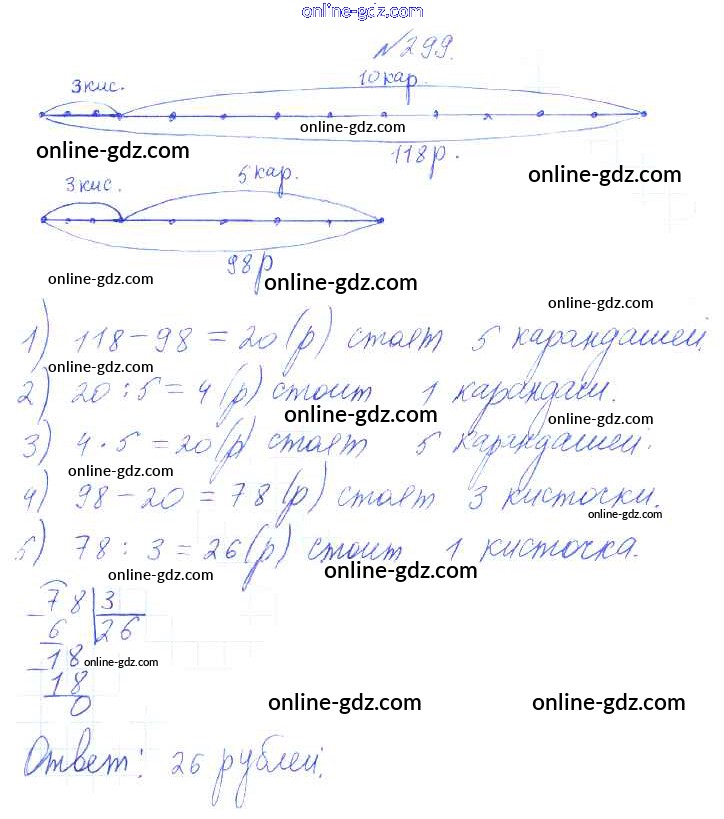 online-gdz.com
№299.
3 кис. 10 кар.
online-gdz.com
online-gdz.com
118 р.
3 кис. 5 кар.
online-gdz.com
98 р
online-gdz.com
online-gdz.com
online-gdz.com
1) 118 - 98 = 20 (р) стоят 5 карандашей.
online-gdz.com
2) 20 : 5 = 4 (р) стоит 1 карандаш.
online-gdz.com
online-gdz.com
3) 4 · 5 = 20 (р) стоят 5 карандашей.
online-gdz.com
4) 98 - 20 = 78 (р) стоят 3 кисточки.
online-gdz.com
5) 78 : 3 = 26 (р) стоит 1 кисточка.
online-gdz.com
online-gdz.com
- 78 | 3
6 26
- 18
online-gdz.com
18
0
online-gdz.com
online-gdz.com
Ответ: 26 рублей.